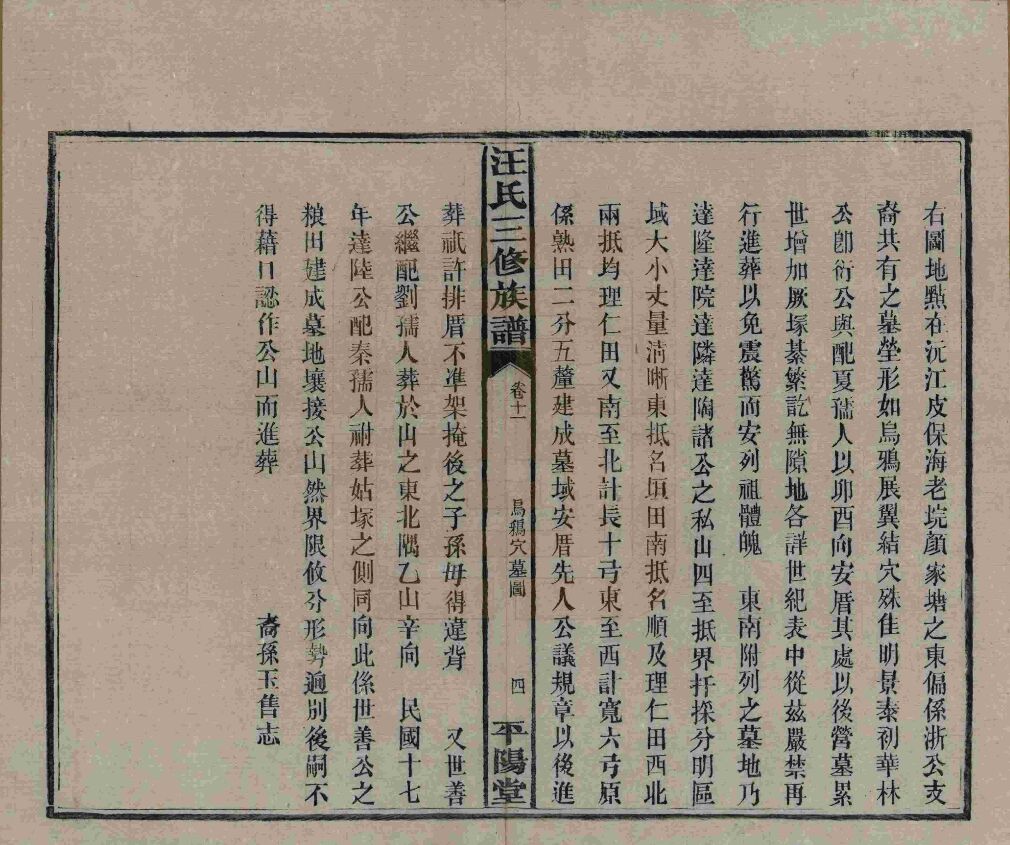 右圖地點在沅江皮保海老垸顏家塘之東偏係浙公支
裔共有之墓塋形如烏鴉展翼結穴殊佳明景泰初華林
公卽衍公與配夏孺人以卯酉向安厝其處以後營墓累
世增加厥塚綦繁訖無隙地各詳世紀表中從茲嚴禁再
行進葬以免震驚而安列祖體魄　東南附列之墓地乃
達隆達院達隣達陶諸公之私山四至抵界扦採分明區
域大小丈量淸晰東抵名垣田南抵名順及理仁田西北
兩抵均理仁田又南至北計長十弓東至西計寬六弓原
係熟田二分五釐建成墓域安厝先人公議規章以後進
汪氏三修族譜
卷十一
烏鴉穴墓圖
四
平陽堂
葬祇許排厝不準架掩後之子孫毋得違背　又世善
公繼配劉孺人葬於山之東北隅乙山辛向　民國十七
年達陸公配秦孺人祔葬姑塚之側同向此係世善公之
粮田建成墓地壤接公山然界限攸分形勢迥別後嗣不
得藉口認作公山而進葬
裔孫玉售志